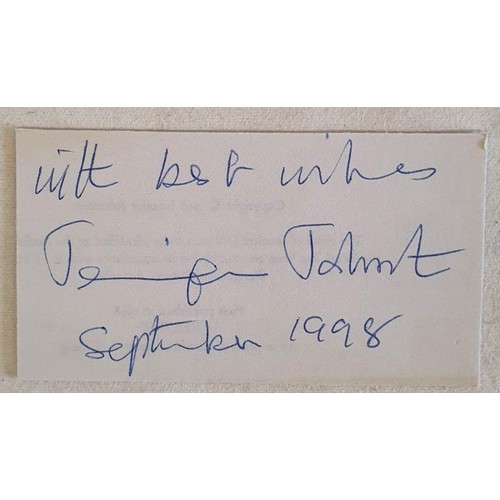 with best wishes
Jennifer Johnston
September 1998